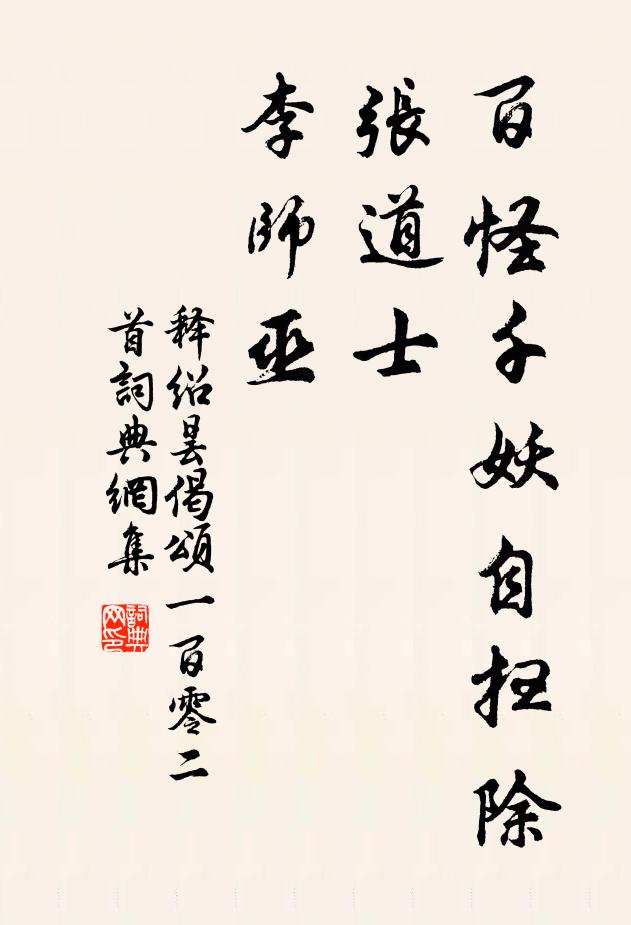 百怪千妖自扫除
張道士
李師巫
释绍昙偈頌一百零二
首詞典網集
詞典
网印